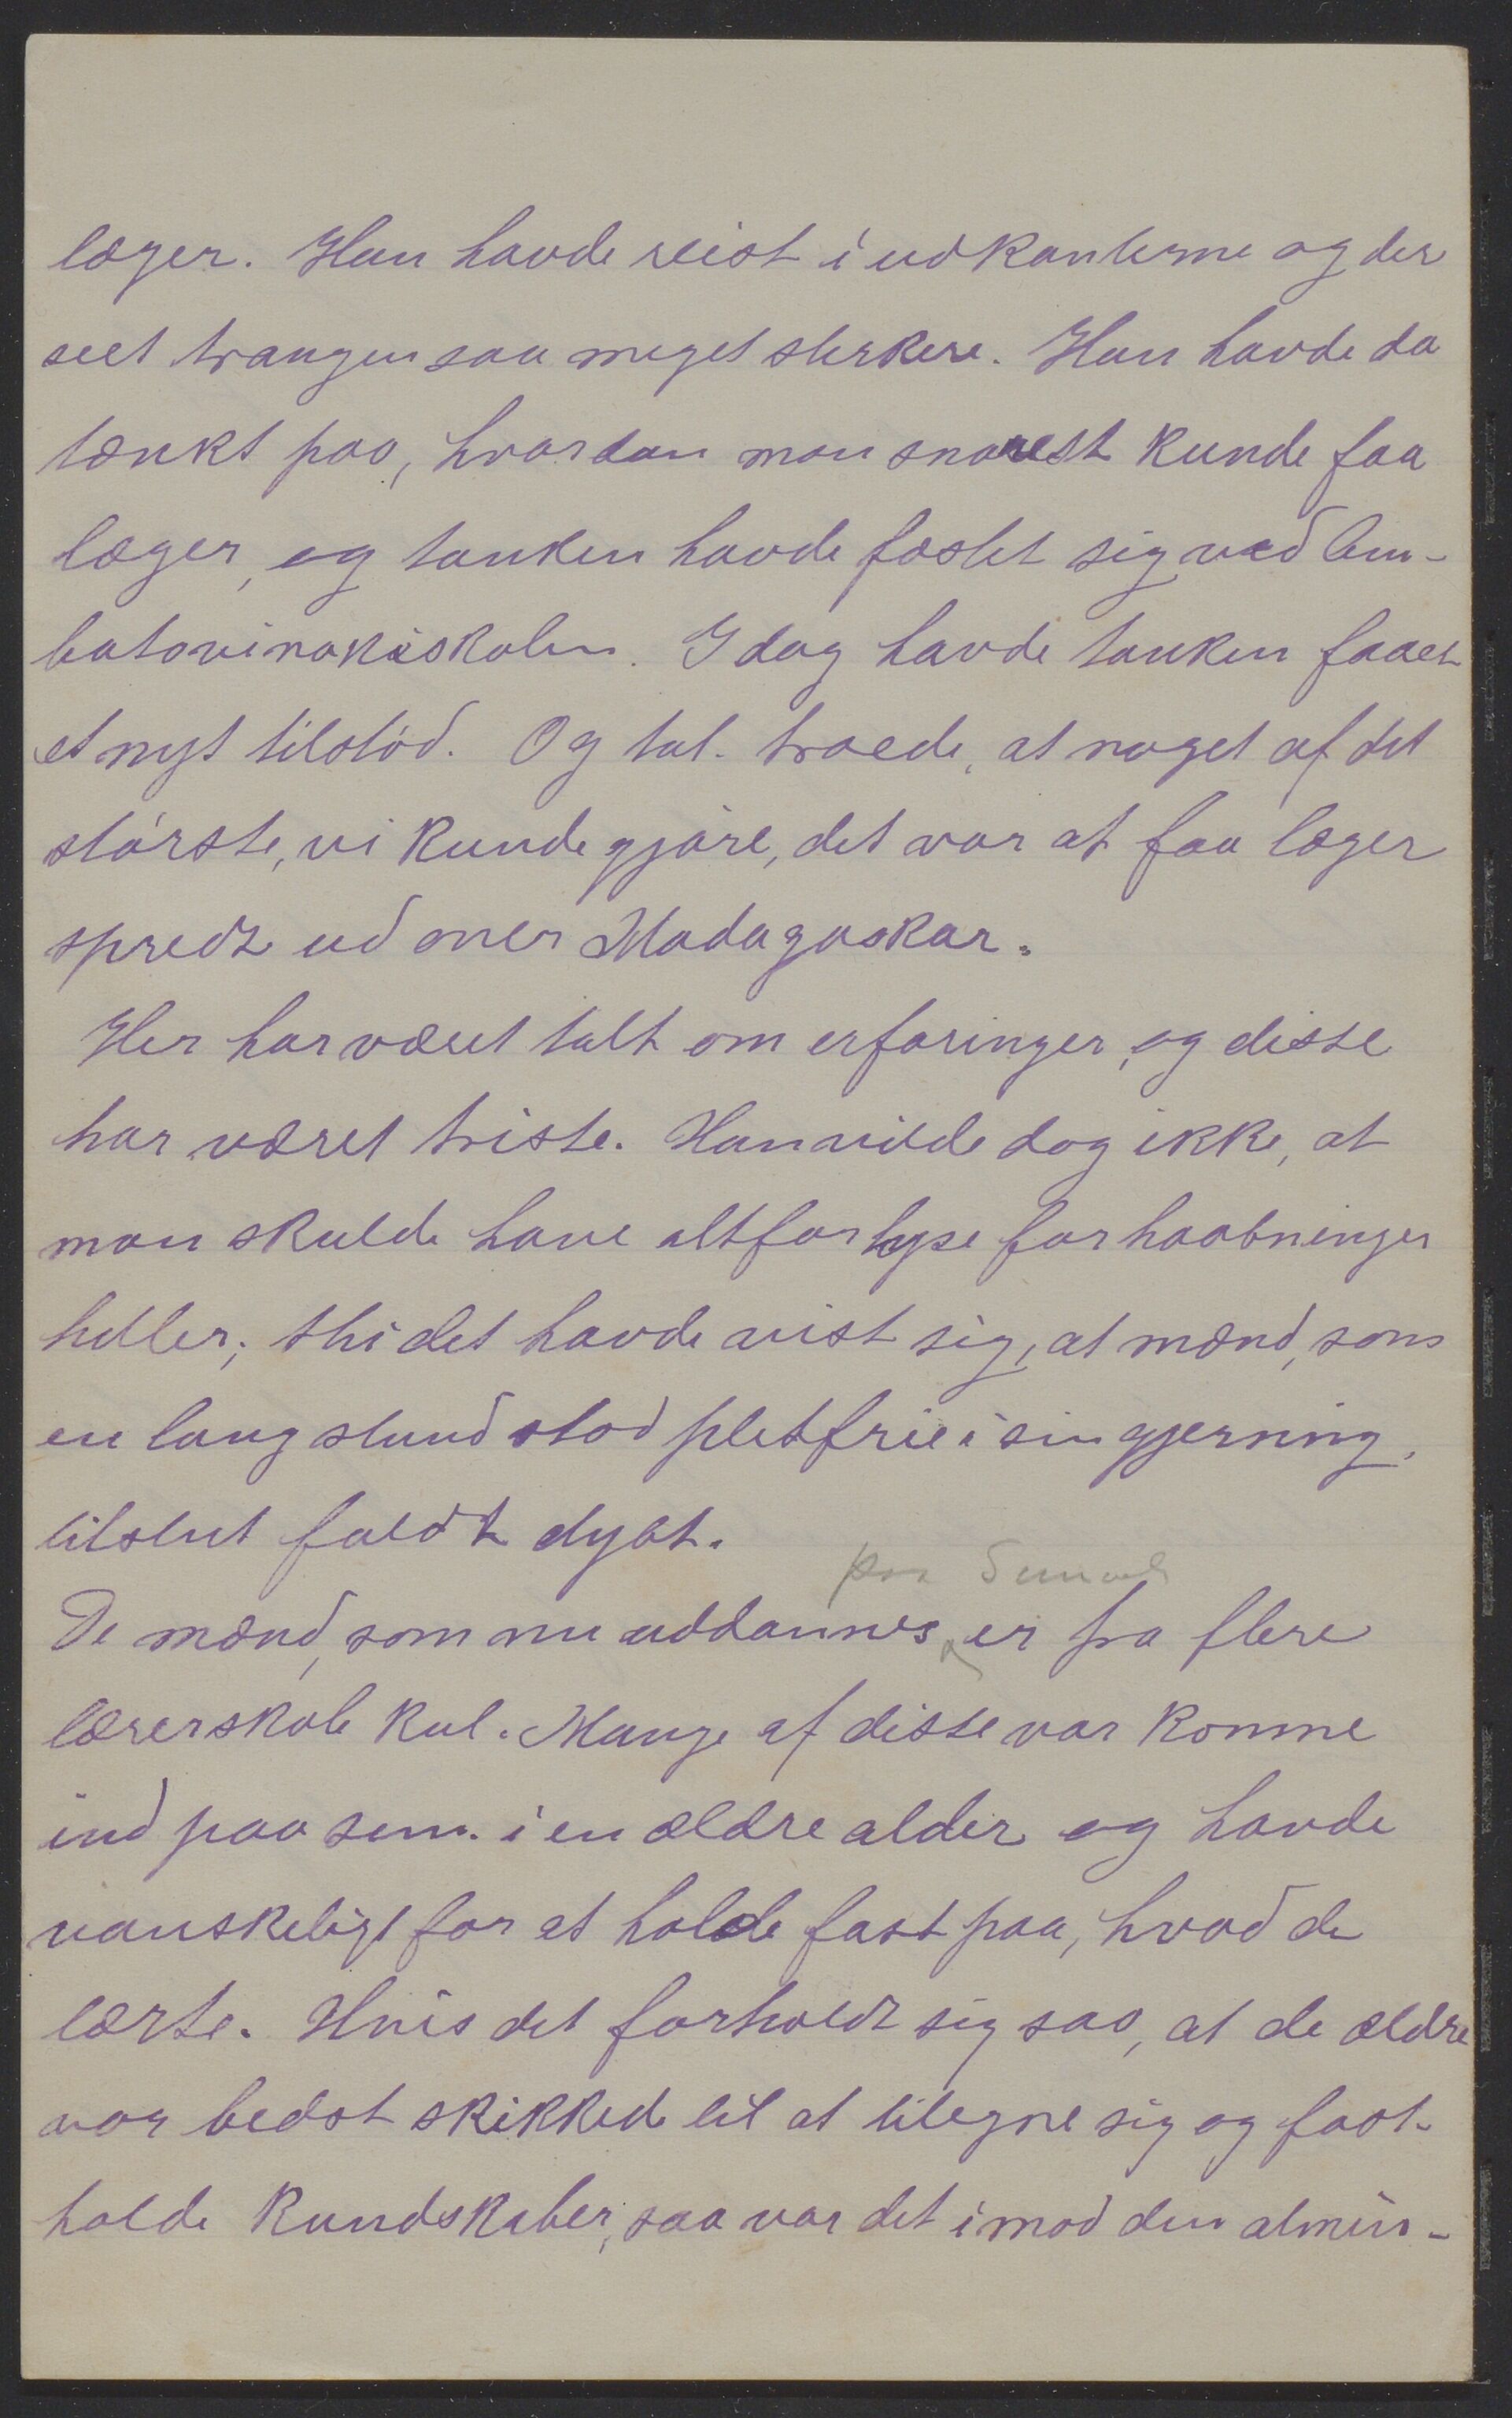 læger. Han havde reist i udkanterne og der
seet trangen saa meget sterkere. Han havde da
tænkt paa, hvordan man snarest kunde faa
læger, og tanken havde fæstet sig ved Am-
batovinakiskolen. I dag havde tanken faaet
et nyt tilstød. Og tal. troede, at noget af det
største, vi kunde gjøre, det var at faa læger
spredt ud over Madagaskar.
Her har været talt om erfaringer, og disse
har været triste. Han vilde dog ikke, at
man skulde have altfor lyse forhaabninger
heller; thi det havde vist sig, at mænd, som
en lang stund stod pletfrie i sin gjerning,
tilslut faldt dybt.
paa Seminar
De mænd, som nu uddannes er fra flere
lærerskole kul. Mange af disse var komne
ind paa sem. i en ældre alder og havde
vanskeligt for at holde fast paa, hvad de
lærte. Hvis det forholdt sig saa, at de ældre
var bedst skikkede til at tilegne sig og fast-
holde kundskaber, saa var det imod den almin-